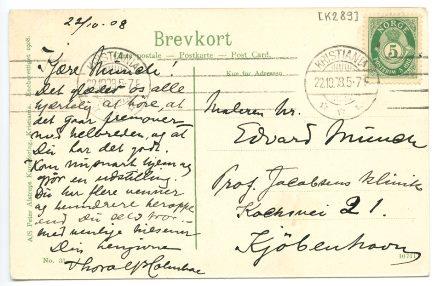 [K289]
22/10-08
Brevkort
postale – Postkarte – Post Card.
Kun for Adressen
NORGE
5
KRISTIANIA
22.10.08.5-7E
KRISTIANIA
22.10.08.5-7E
Kjære Munch!
Det glæder os alle
hjertelig at höre, at
det gaar fremover
med helbreden, og at
Du har det godt.
Kom nu snart hjem og
gjör en udstilling.
Du har flere venner
og beundrere heroppe
end Du selv tror.
med venlige hilsener
Din hengivne
Thorolf Holmboe
Maleren Hr.
Edvard Munch
Prof. Jacobsens klinik
Kochsvei 21.
Kjöbenhavn
No.